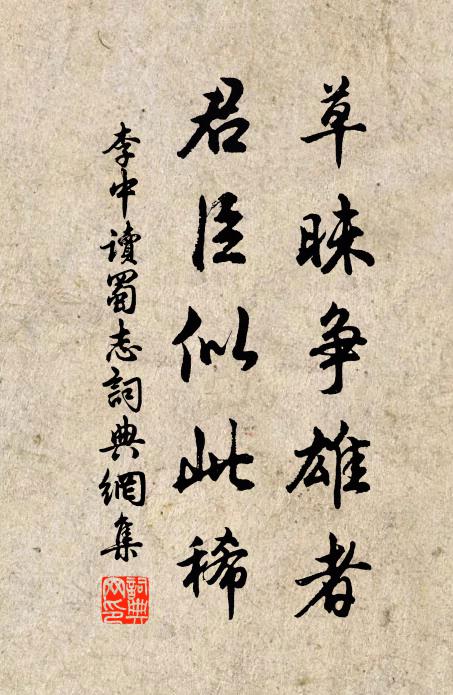 草昧争雄者
君臣似此稀
李中讀蜀志詞典網集
詞典網印